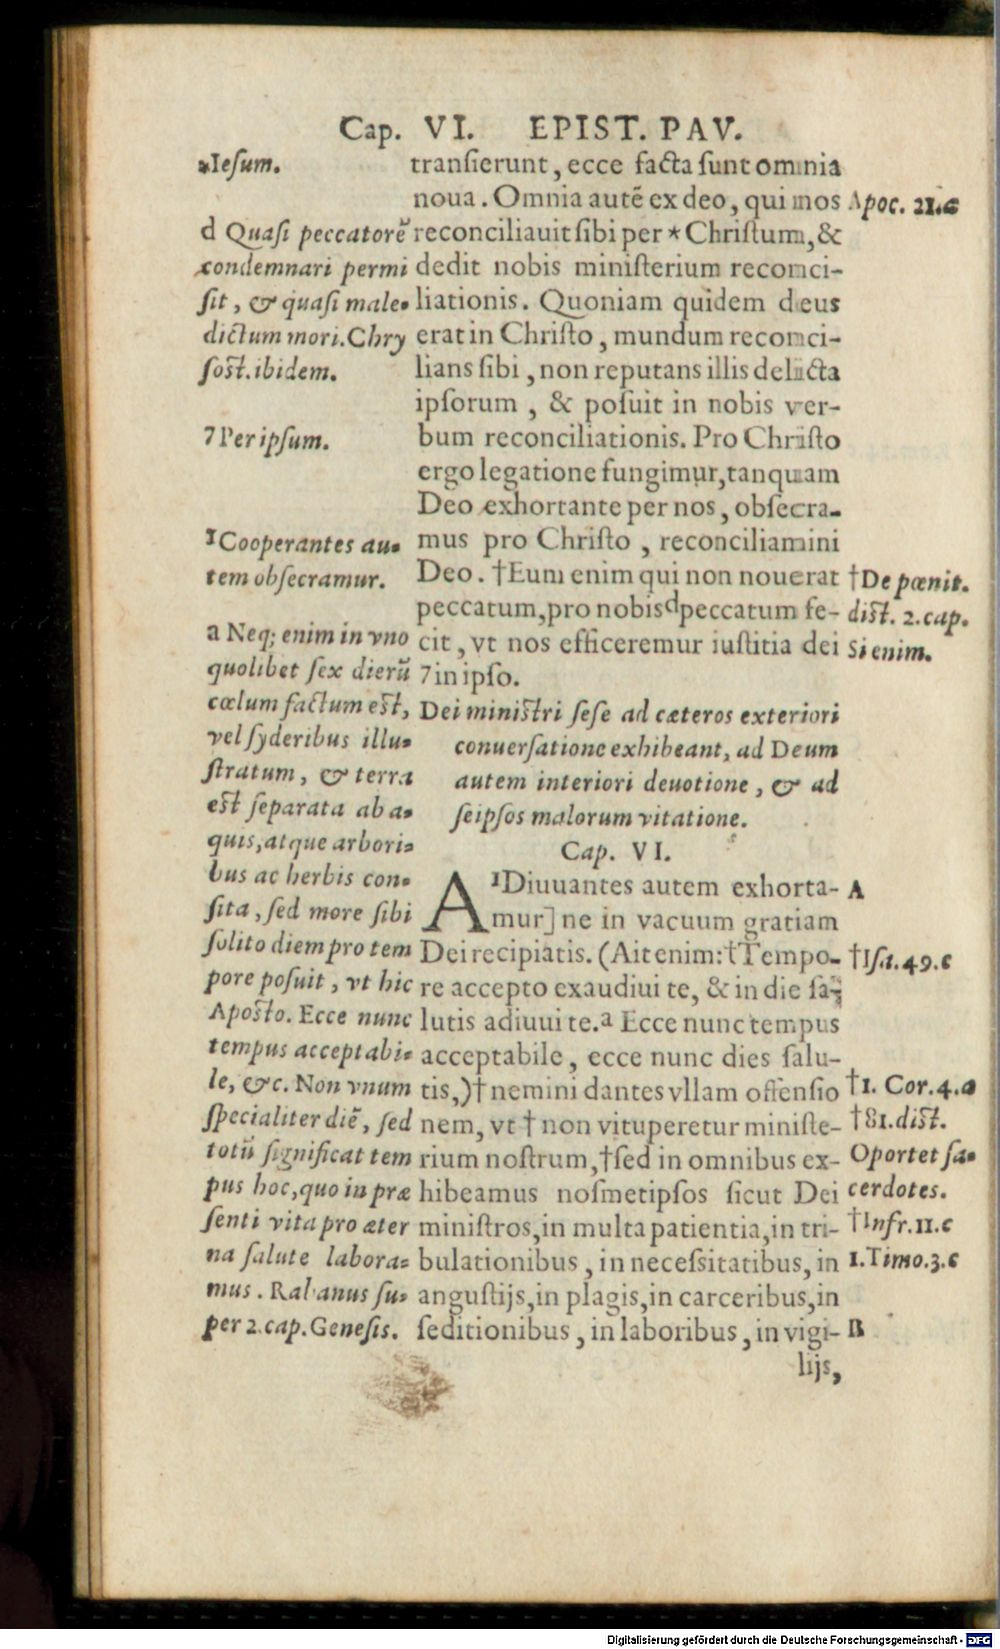 Cap. VI. EPIST. PAV.
*Iesum.
d Quasi peccatorē
condemnari permi
sit, & quasi male-
dictum mori. Chry
sost. ibidem.
7 Per ipsum.
1 Cooperantes au-
tem obsecramur.
a Neq; enim in vno
quolibet sex dierū
cœlum factum est,
vel syderibus illu-
stratum, & terra
est separata ab a-
quis, atque arbori-
bus ac herbis con-
sita, sed more sibi
solito diem pro tem
pore posuit, vt hic
Aposto. Ecce nunc
tempus acceptabi-
le, &c. Non vnum
specialiter diē, sed
totū significat tem
pus hoc, quo in præ
senti vita pro æter
na salute labora-
mus. Rabanus su-
per 2. cap. Genesis.
transierunt, ecce facta sunt omnia
noua. Omnia autē ex deo, qui nos
reconciliauit sibi per * Christum, &
dedit nobis ministerium reconci-
liationis. Quoniam quidem deus
erat in Christo, mundum reconci-
lians sibi, non reputans illis delicta
ipsorum, & posuit in nobis ver-
bum reconciliationis. Pro Christo
ergo legatione fungimur, tanquam
Deo exhortante per nos, obsecra-
mus pro Christo, reconciliamini
Deo. †Eum enim qui non nouerat
peccatum, pro nobis d peccatum fe-
cit, vt nos efficeremur iustitia dei
7 in ipso.
Dei ministri sese ad cæteros exteriori
conuersatione exhibeant, ad Deum
autem interiori deuotione, & ad
seipsos malorum vitatione.
Cap. VI.
A 1Diuuantes autem exhorta-
mur] ne in vacuum gratiam
Dei recipiatis. (Ait enim: †Tempo-
re accepto exaudiui te, & in die sa-
lutis adiuui te. a Ecce nunc tempus
acceptabile, ecce nunc dies salu-
tis,) † nemini dantes vllam offensio
nem, vt † non vituperetur ministe-
rium nostrum, †sed in omnibus ex-
hibeamus nosmetipsos sicut Dei
ministros, in multa patientia, in tri-
bulationibus, in necessitatibus, in
angustijs, in plagis, in carceribus, in
seditionibus, in laboribus, in vigi-
lijs,
Apoc. 21.c
†De pœnit.
dist. 2. cap.
Si enim.
A
†Isa. 49. c
†1. Cor. 4. a
†81. dist.
Oportet sa-
cerdotes.
†Infr. 11. c
1. Timo. 3. c
B
Digitalisierung gefördert durch die Deutsche Forschungsgemeinschaft - DFG